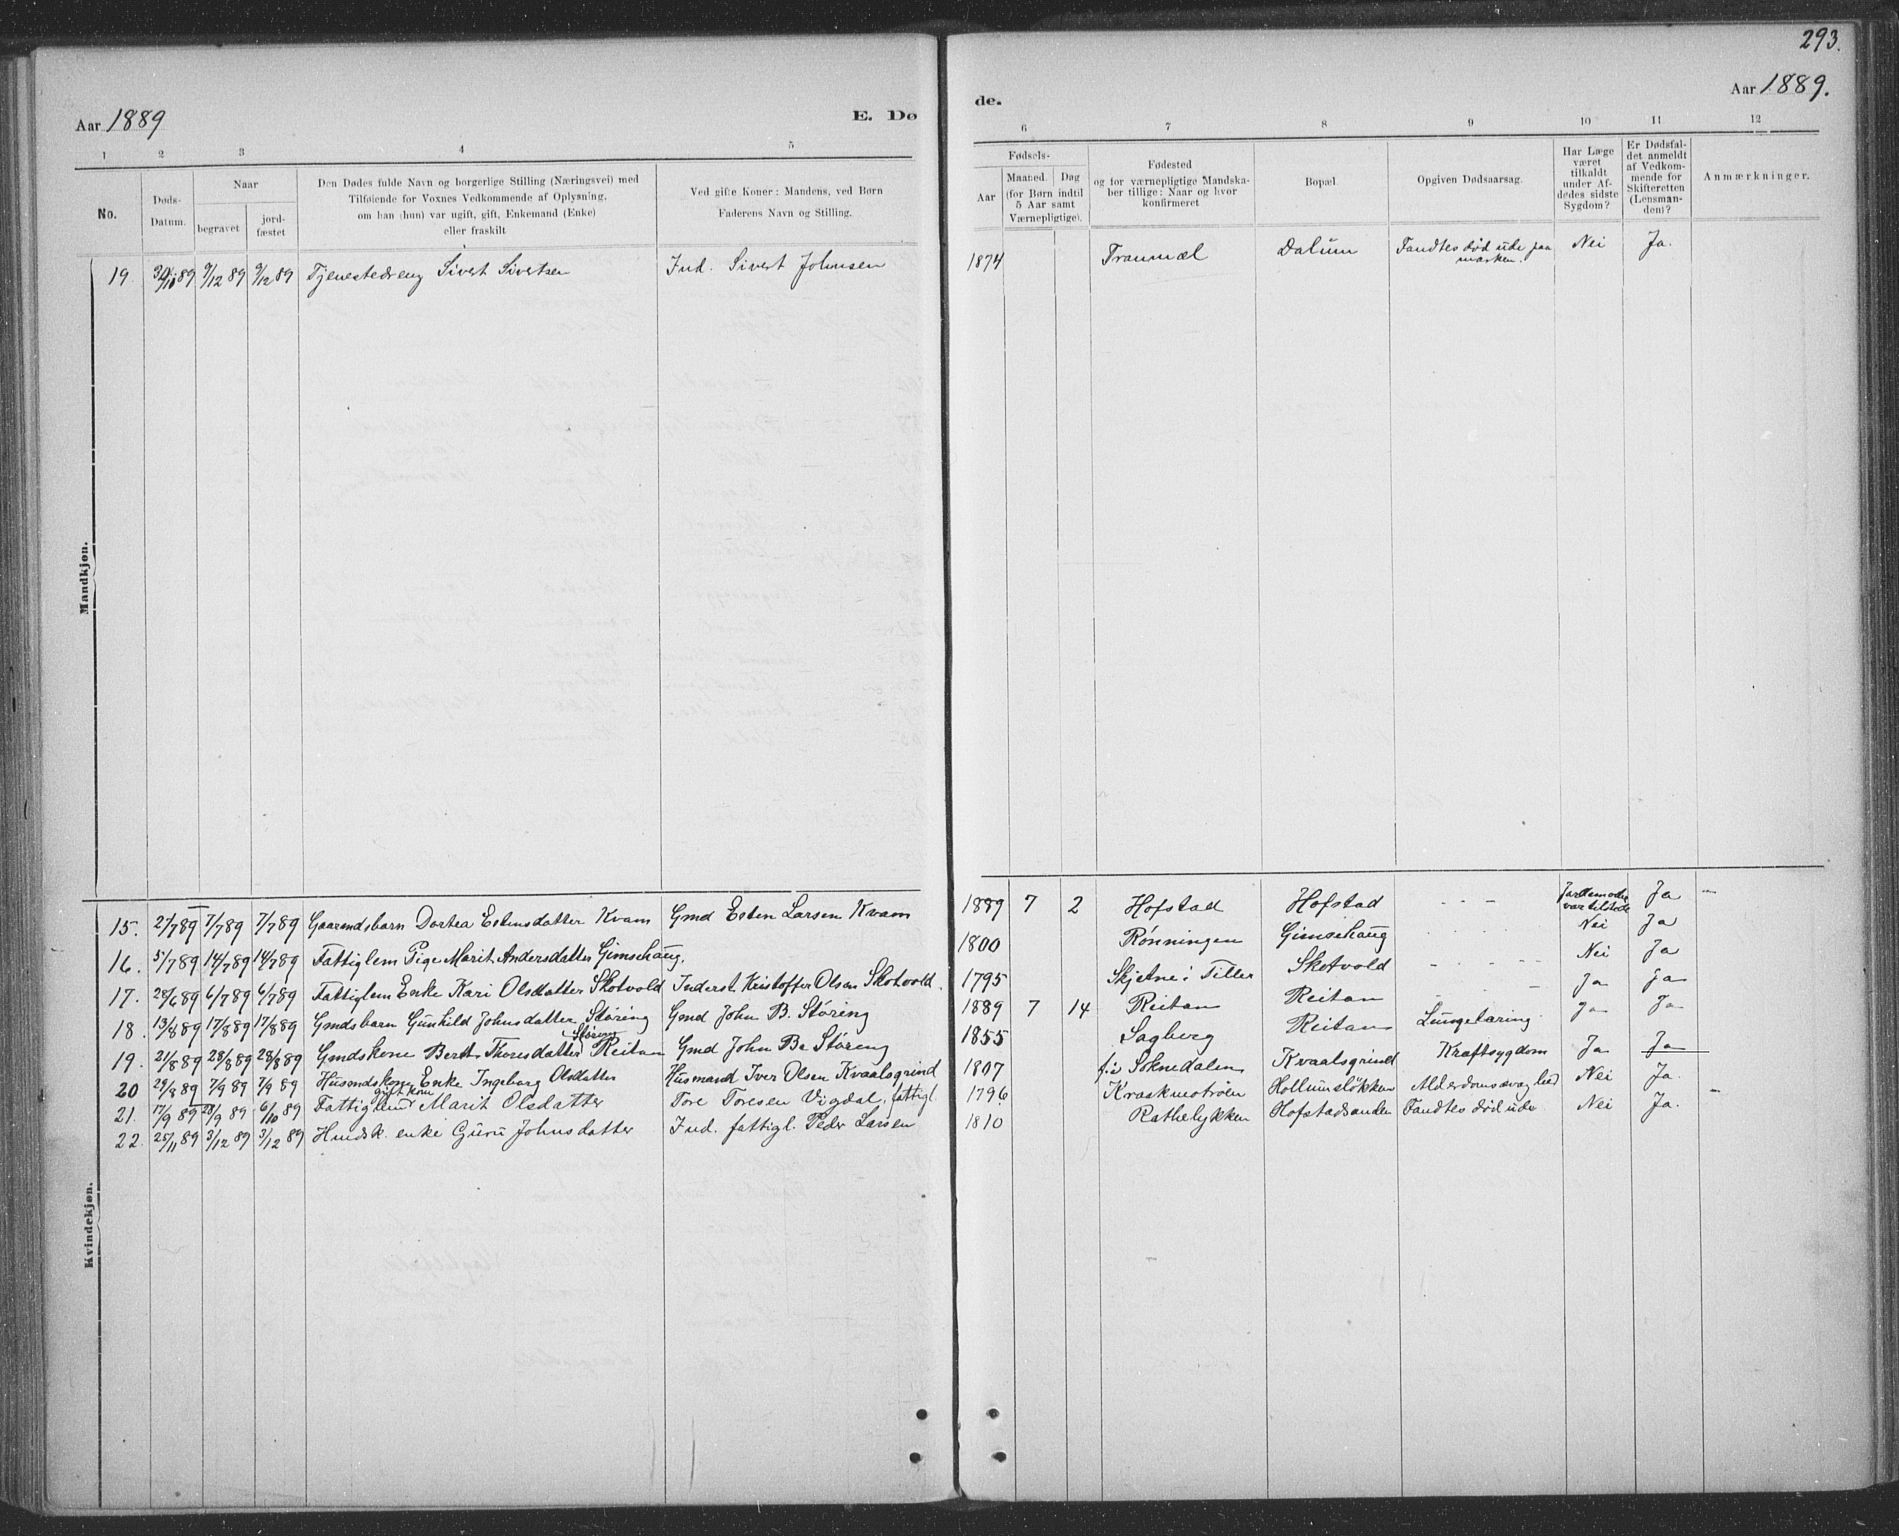 293.
Aar 1889
E. Dø
de.
Aar 1889.
1 2 3 4 5 6 7 8 9 10 11 12
No.
Døds-
Datum.
Naar
begravet
jord-
fæstet
Den Dødes fulde Navn og borgerlige Stilling (Næringsvei) med
Tilføiende for Voxnes Vedkommende af Oplysning,
om han (hun) var ugift, gift, Enkemand (Enke)
eller fraskilt
Ved gifte Koner: Mandens, ved Børn
Faderens Navn og Stilling.
Fødsels-
Aar
Maaned. Døg
(for Børn indtil
5 Aar samt
Værnepligtige).
Fødested
og for værnepligtige Mandska-
ber tillige: Naar og hvor
konfirmeret
Bopæl.
Opgiven Dødsaarsag.
Har Læge
været
tilkaldt
under Af-
dødes sidste
Sygdom?
Er Dødsfal-
det anmeldt
af Vedkom-
mende for
Skifteretten
(Lensman-
den)?
Anmærkninger.
Mandkjøn.
19 30/11 89 9/12 89 9/12 89 Tjenestedreng Sivert Sivertsen Ind. Sivert Johnsen 1874 Tranmæl Dalum Fandtes død ude paa marken. Nei Ja.
Kvindekjøn.
15. 2/7 89 7/7 89 7/7 89 Gaardmdsbarn Dortea Estensdatter Kvam Gmd Esten Larsen Kvam 1889 7 2 Hofstad Hofstad - - - Jordemoder var tilstede Ja -
16. 5/7 89 14/7 89 14/7 89 Fattiglem Pige Marit Andersdatter Gimsehaug. 1800 Rønningen Gimsehaug Nei Ja
17. 28/6 89 6/7 89 6/7 89 Fattiglem Enke Kari Olsdatter Skotvold Inderst Kristoffer Olsen Skotvold. 1795 Skjetne i Tiller Skotvold Nei Ja
18. 13/8 89 17/8 89 17/8 89 Gmdsbarn Gunhild Johnsdatter Støring Gmd John B. Støring 1889 7 14 Reitan Reitan Ja Ja
19. 21/8 89 28/8 89 28/8 89 Gmdskone Berit Thoresdatter Støren Reitan Gmd John Br Støreng 1855 Sagberg Reitan Lungetæring. Ja Ja
20 29/8 89 7/9 89 7/9 89 Husmdskone Enke Ingeborg Olsdatter Husmand Iver Olsen Kvaalsgrind 1807 Soknedalen Kvaalsgrind Kraftsygdom Ja Ja
21. 17/9 89 28/9 89 6/10 89 Fattiglem gift kone Marit Olsdatter Tore Toresen Vigdal, fattigl. 1796 Kraakmotrøen Hollumsløkken Alderdomssvaghed Nei Ja. -
22. 25/11 89 3/12 89 3/12 89 Hmdsk. enke Guru Johnsdatter Ind. fattigl. Peder Larsen 1810 Rathelykken Hofstadsanden Fandtes død ude Nei Ja.